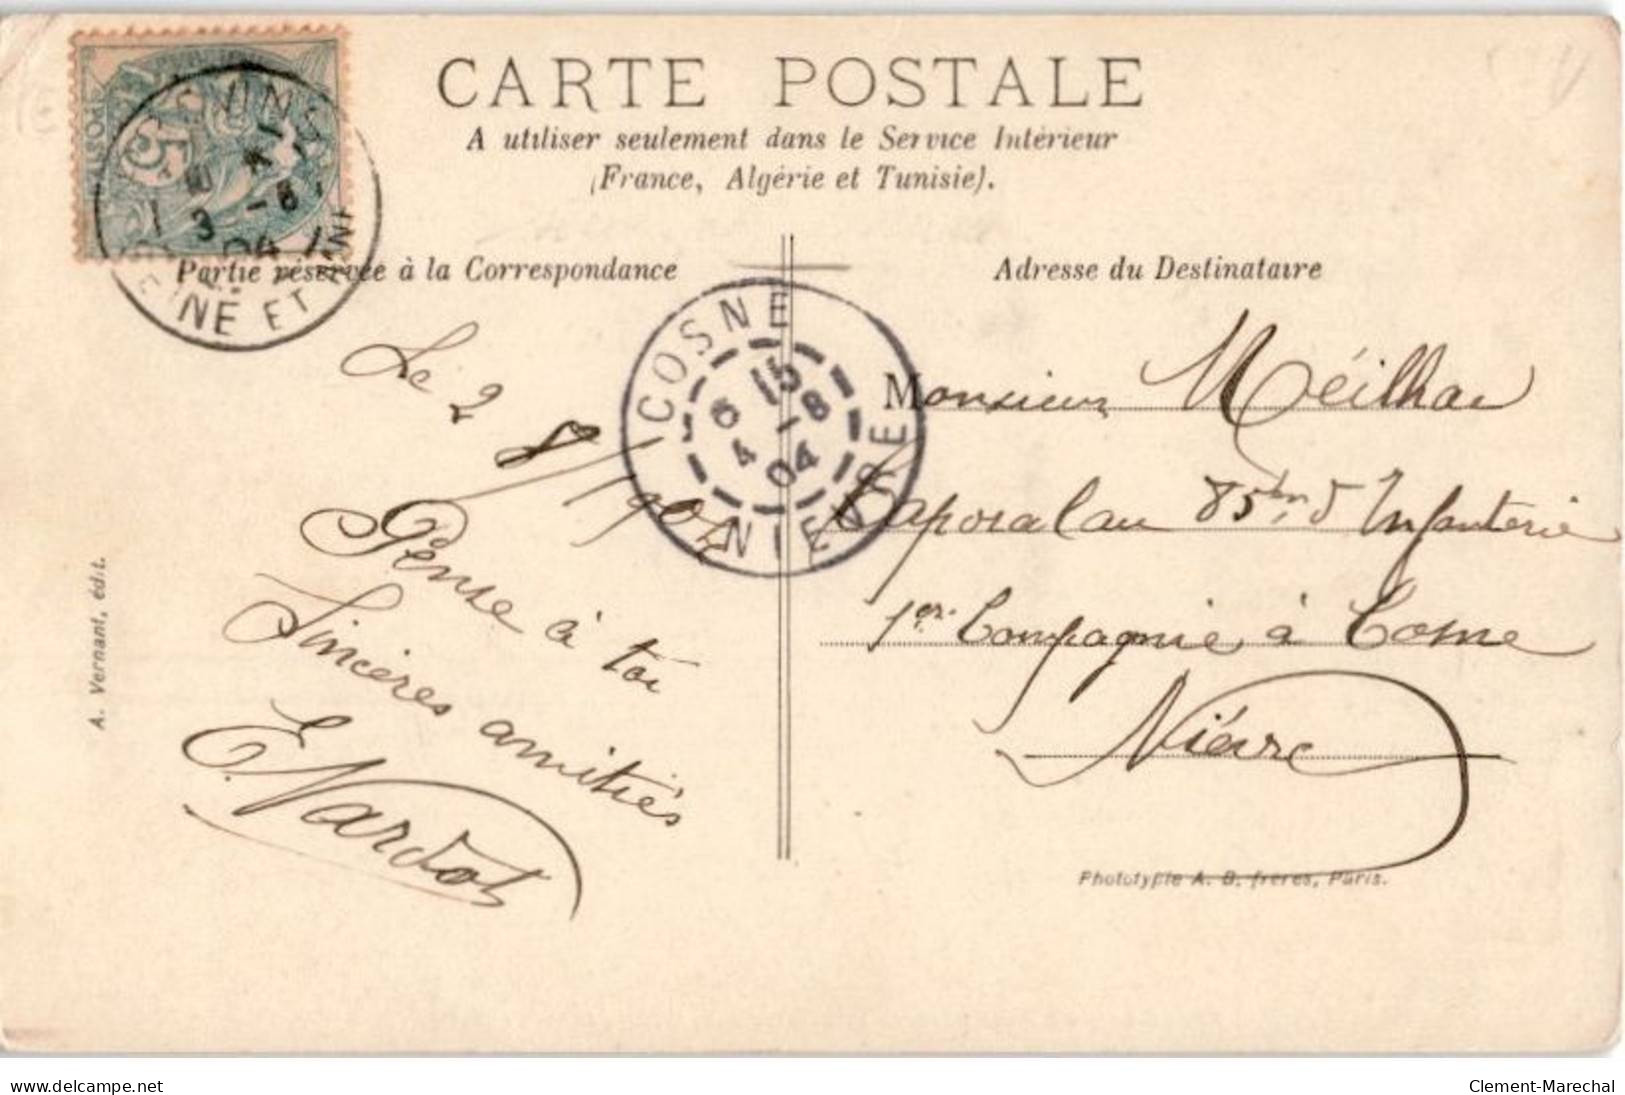 CARTE POSTALE
A utiliser seulement dans le Service Intérieur
(France, Algérie et Tunisie).
Partie réservée à la Correspondance
Adresse du Destinataire
5
3 -8
04
SEINE ET
COSNE
6 15
4 -8
04
NIEVRE
Le 2
8/1904
Pense à toi
Sincères amitiés
E. Nardot
Monsieur Méilhac
Caporal au 85ème d'Infanterie
1ère Compagnie à Cosne
Nièvre
A. Vernant, édit.
Phototypie A. B. frères, Paris.
delcampe.net
Clement-Marechal